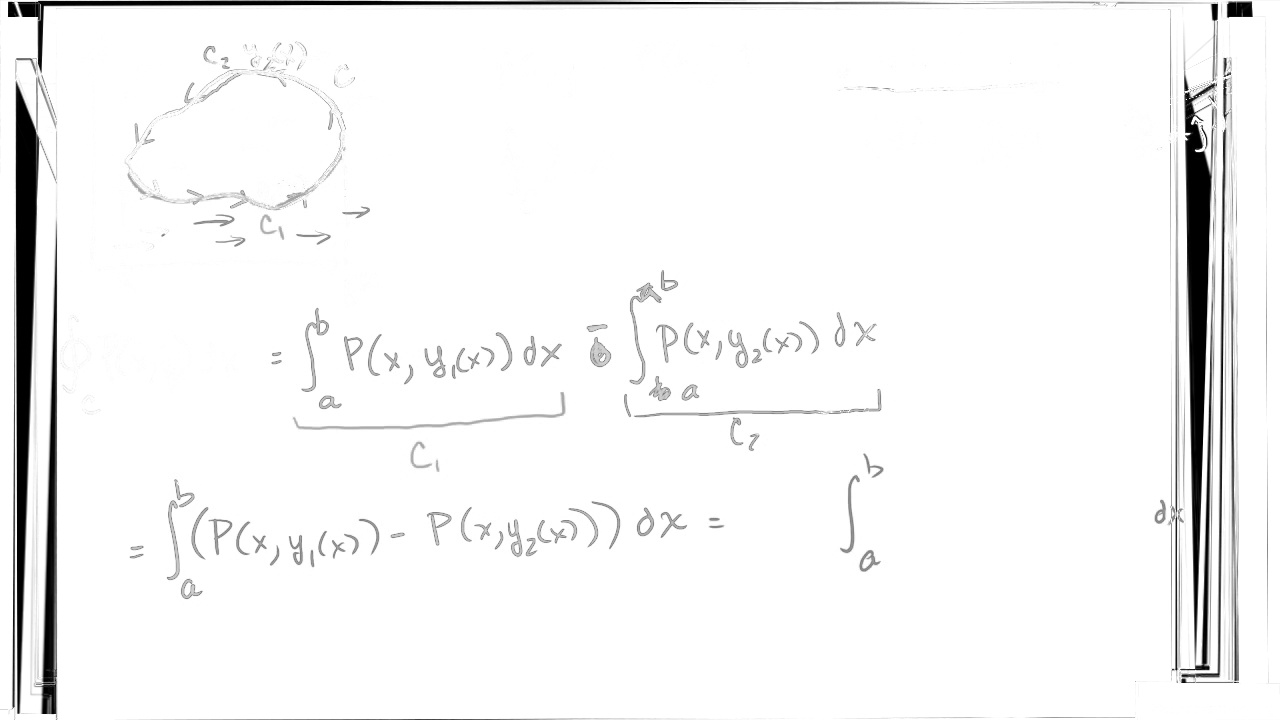 C₂ y₂(x) C
C₁
= ∫ₐᵇ P(x, y₁(x)) dx - ∫ₐᵇ P(x, y₂(x)) dx
C₁ C₂
= ∫ₐᵇ (P(x, y₁(x)) - P(x, y₂(x))) dx = ∫ₐᵇ dx